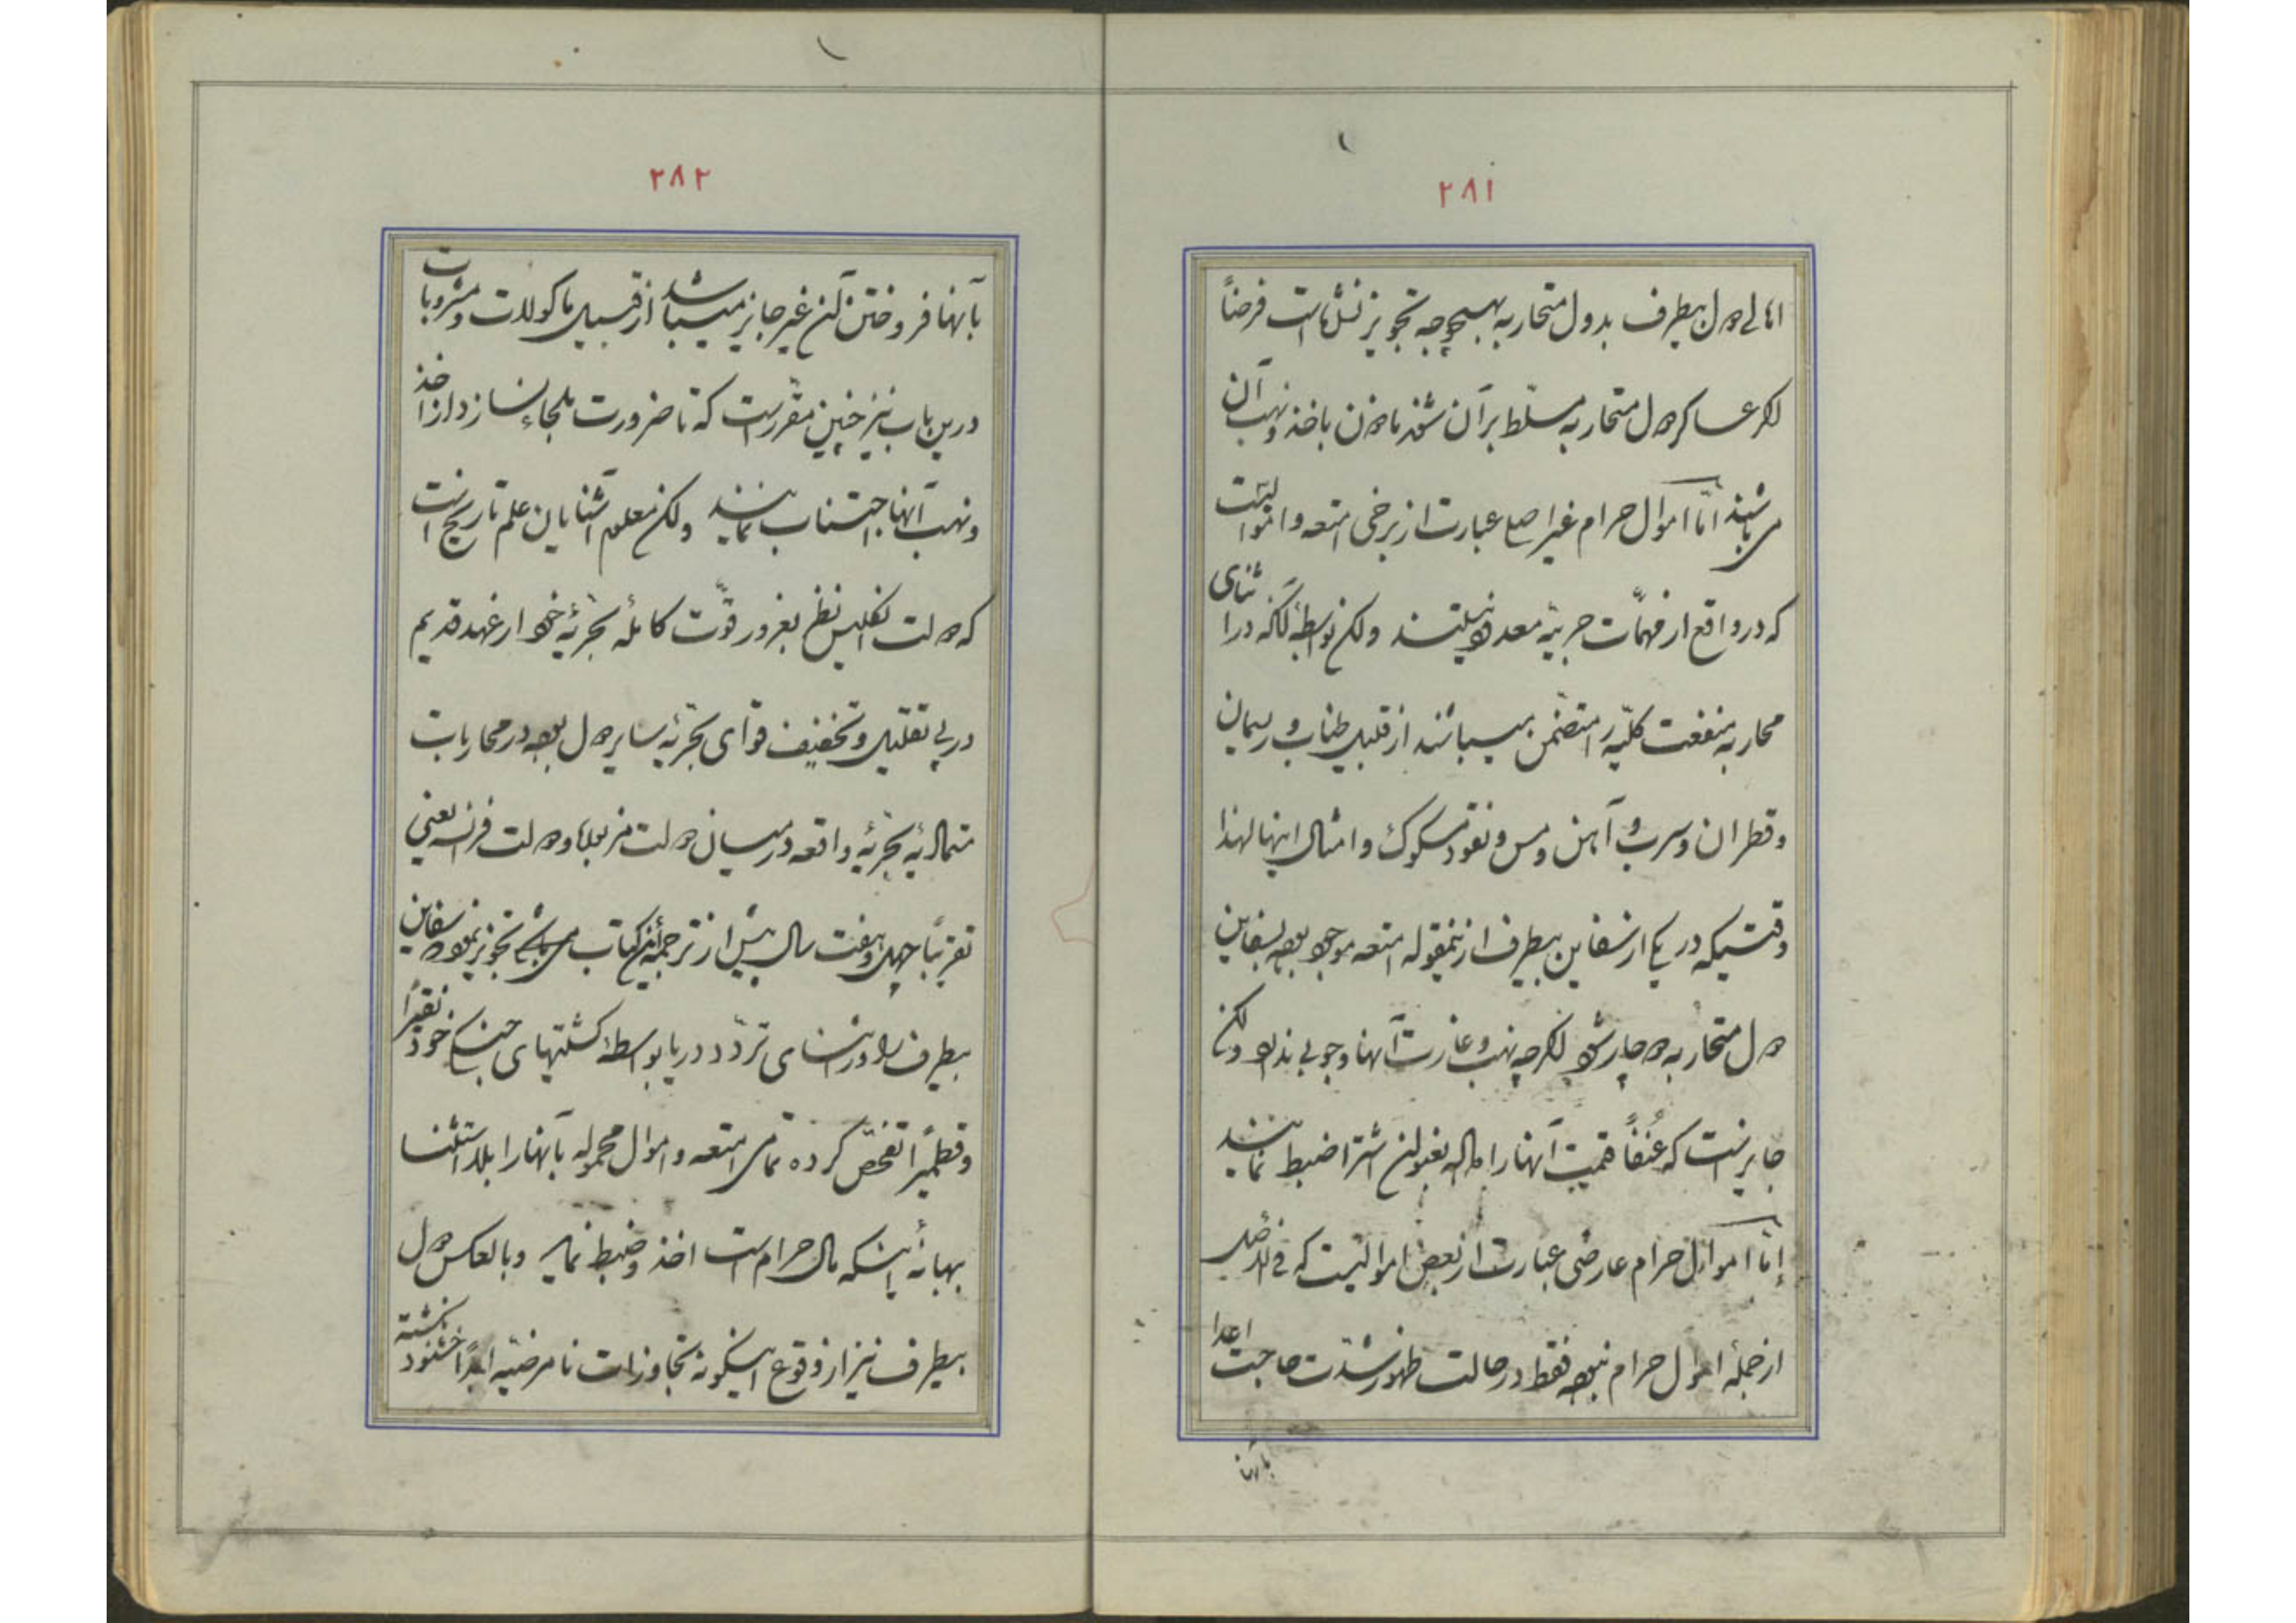 ۲۸۱
اهالی دول بیطرف بدول متحاربه بهیچوجه تجویز نشده است فرضاً
اگر عساکر دول متحاربه مسلّط بر آن شوند ماذون باخذ و نهب آن
می باشند امّا اموال حرام غیر اصلی عبارت از برخی امتعه و اموالیست
که در واقع از مهمّات حربیّه معدود نیستند ولکن بواسطهٔ آنکه در اثنای
محاربه منفعت کلیّه را متضمّن میباشند از قبیل طناب و ریسمان
و قطران و سرب و آهن و مس و نقود مسکوک و امثال اینها لهذا
وقتیکه در یکی از سفاین بیطرف ازینمقوله امتعه موجود بوده بسفاین
دول متحاربه دچار شود اگرچه نهب و غارت آنها وجوبی ندارد ولکن
جایز است که عُنفاً قیمت آنها را داده بعنوان اشترا ضبط نمایند
امّا اموال حرام عارضی عبارت از بعض اموالیست که فی الاصل
از جملهٔ اموال حرام نبوده فقط در حالت ظهور شدّت حاجت اعدا
بآنها
۲۸۲
بآنها فروختن آن غیر جایز میباشد از قبیل ماکولات و مشروبات
درین باب نیز چنین مقرّر است که تا ضرورت ملجاء نسازد از اخذ
و نهب آنها اجتناب نمایند ولکن معلوم آشنایان علم تاریخ است
که دولت انگلیس نظر بغرور قوّت کاملهٔ بحریّهٔ خود از عهد قدیم
در پی تقلیل و تخفیف قوای بحریّه سایر دول بوده در محاربات
متمادیهٔ بحریّهٔ واقعه در میان دولت مزبوره و دولت فرانسه یعنی
تقریباً چهل و هفت سال پیش از ترجمهٔ این کتاب می باشد تجویز نموده سفاین
بیطرف را در اثنای تردّد دریا بواسطهٔ کشتیهای جنگی خود نقیراً
و قطمیراً تفحّص کرده تمامی امتعه و اموال محموله بآنها را بلا استثنا
بهانهٔ اینکه مال حرام است اخذ و ضبط نماید و بالعکس دول
بیطرف نیز از وقوع اینگونه تجاوزات نامرضیّه ابداً خشنود نگشته